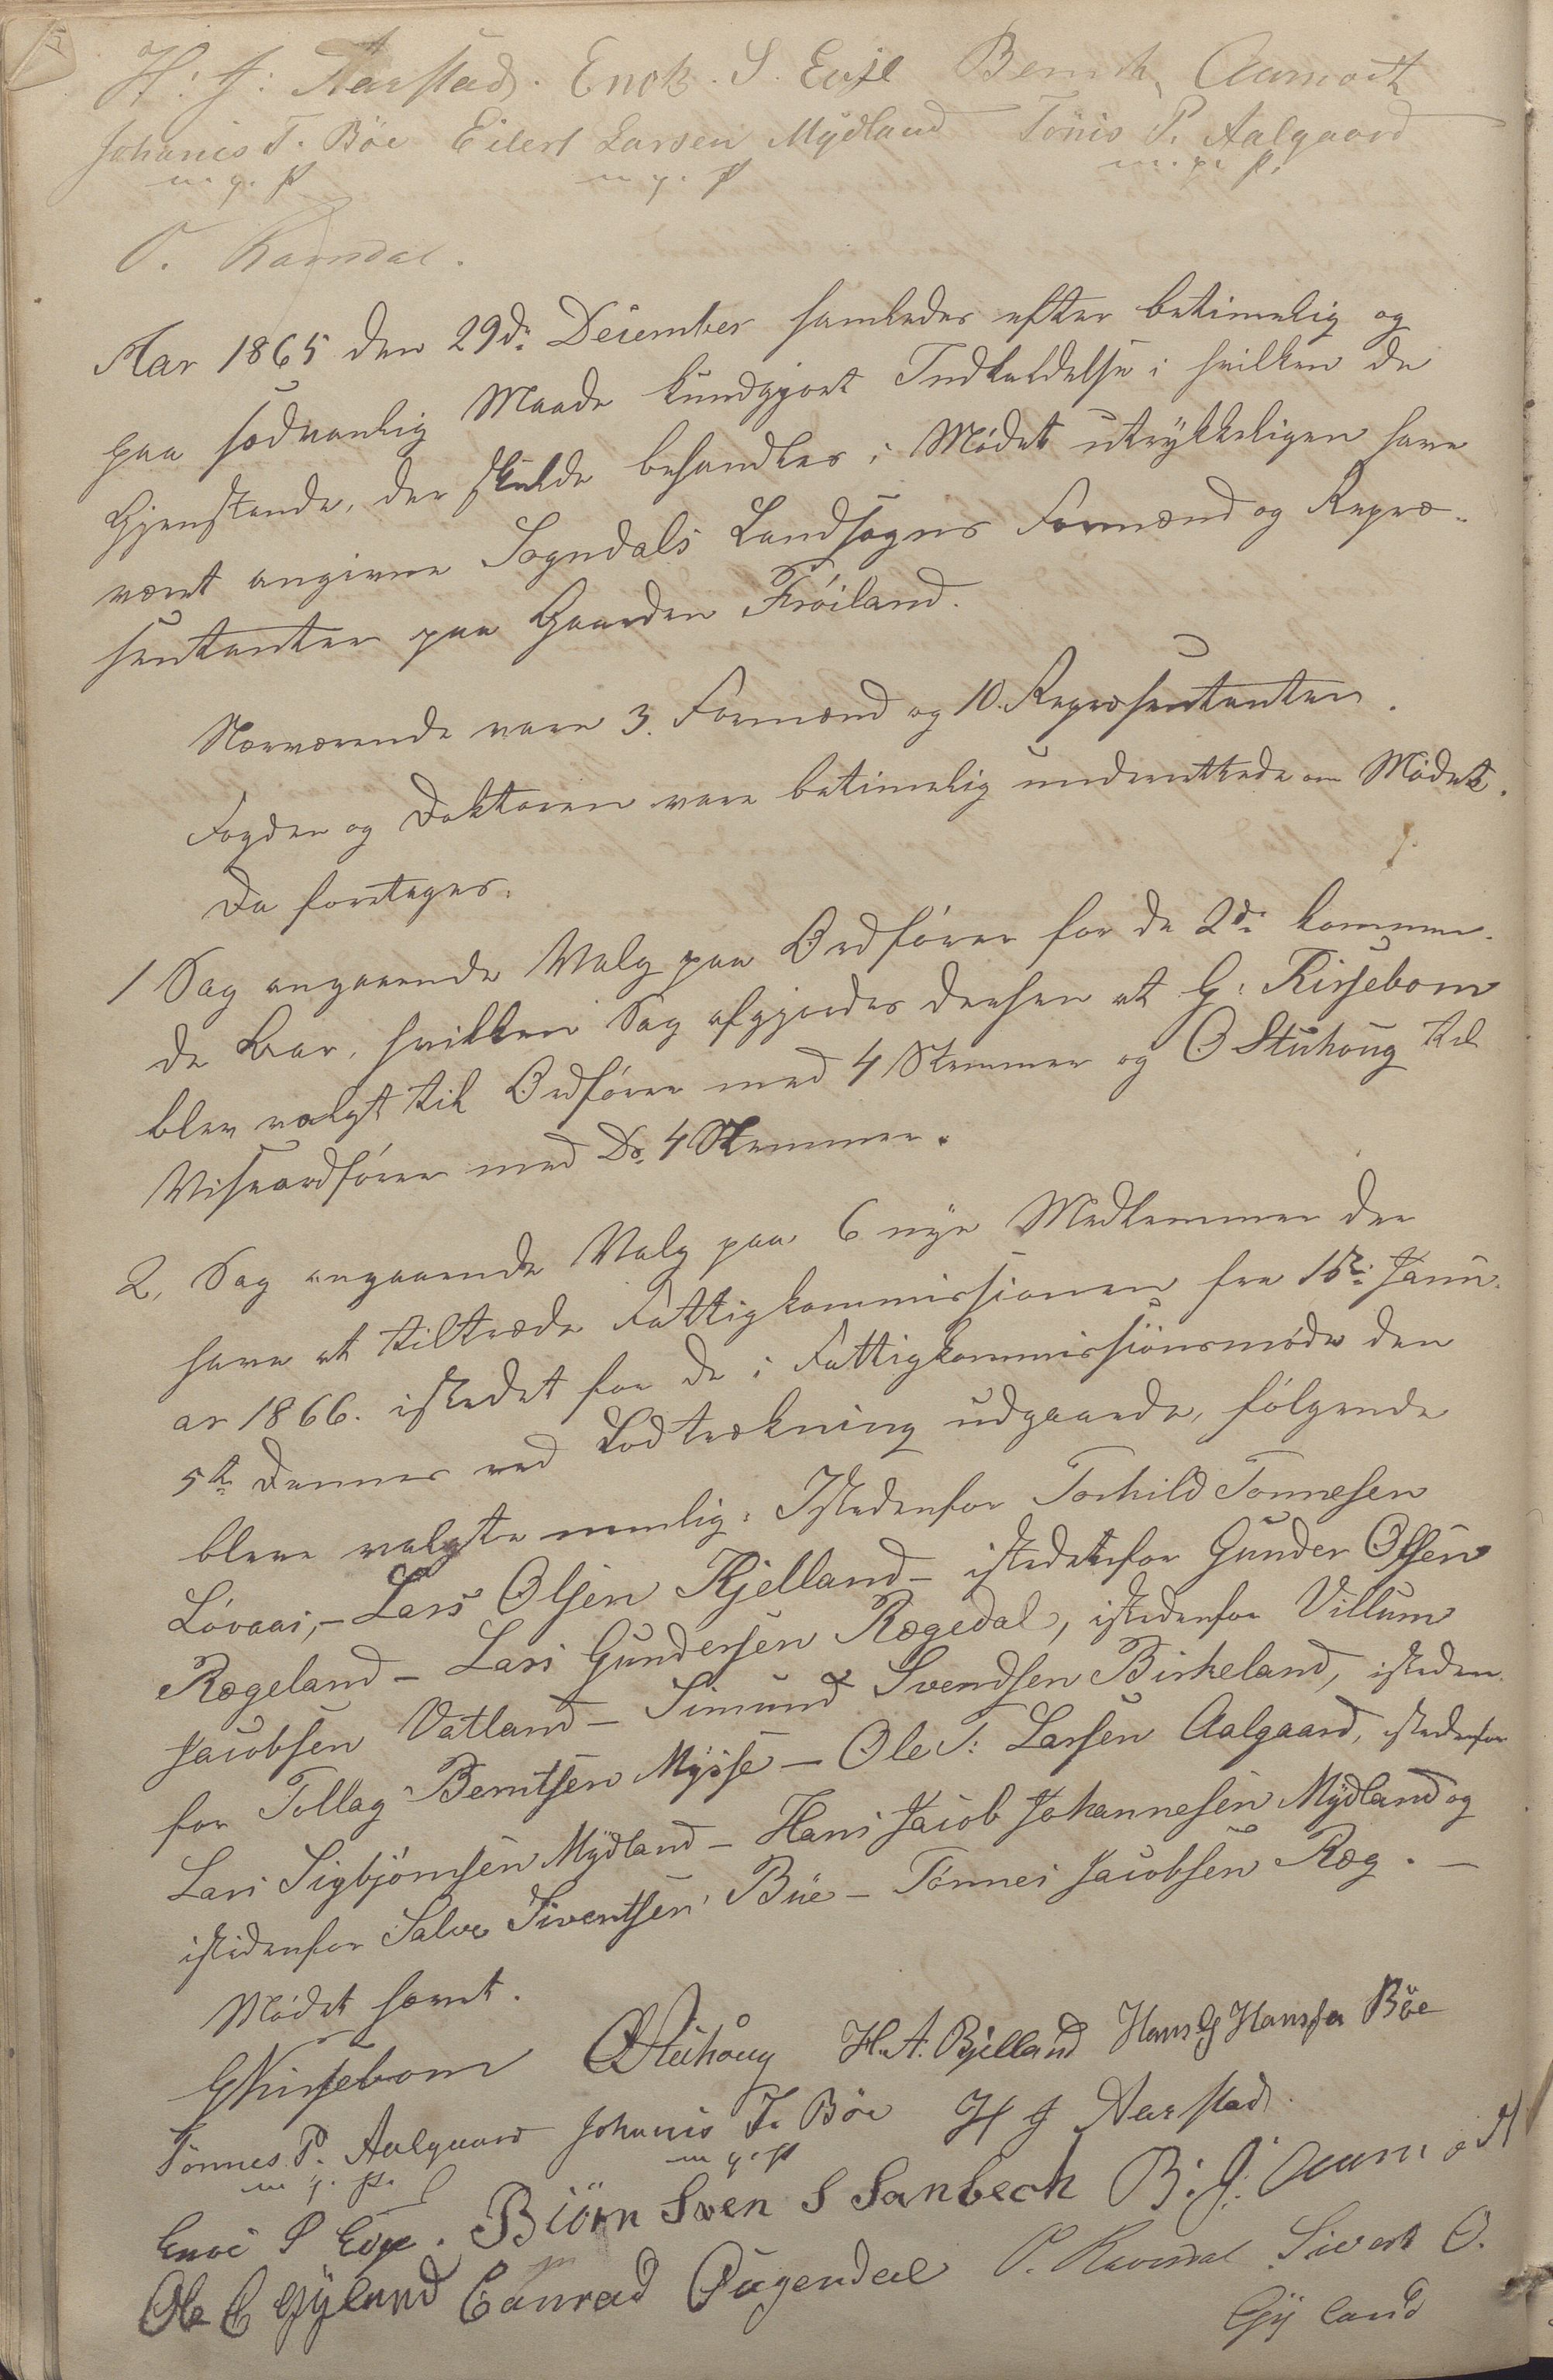 H: J: Aarstad. Enok. S. Eøje Bernth Aamodt
Johanes T. Böe Eilert Larsen Mydland Tönis P. Aalgaard
m. p. P m p. P m. p. P.
O. Ravndal.
Aar 1865 den 29de December samledes efter betimelig og
paa sædvanlig Maade kundgjort Indkaldelse i hvilken de
Gjenstande, der skulde behandles i Mödet utrykkeligen have
været angivne Sogndals Landsogns Formænd og Repræ-
sentanter paa Gaarden Fröiland.
Nærværende vare 3. Formænd og 10. Repræsentanter.
Fogden og Doktoren vare betimelig underrettede om Mödet.
Da foretages.
1 Sag angaaende Valg paa Ordförer for de 2de kommen-
de Aar, hvilken Sag afgjordes derhen at G: Kirsebom
blev valgt til Ordförer med 4 Stemmer og O Stuhoug til
Viseordförer med Do. 4 Stemmer.
2, Sag angaaende Valg paa 6 nye Medlemmer der
have at tiltræde Fattigkommissionen fra 1ste Janu-
ar 1866. istedet for de i Fattigkommissionsmöde den
5te Dennes ved Lodtrækning udgaaede, fölgende
bleve valgte nemlig: Istedenfor Torkild Tonnesen
Lövaas, - Lars Olsen Kjelland - istedetfor Gunder Olsen
Rægeland - Lars Gundersen Rægedal, istedenfor Villum
Jacobsen Vatland - Simund Svendsen Birkeland, isteden-
for Tollag Berntsen Mysse - Ole S: Larsen Aalgaard, istedenfor
Lars Sigbjörnsen Mydland - Hans Jacob Johannesen Mydland og
istedenfor Salve Siventsen Büe - Tönnes Jacobsen Ræg. -
Mödet hævet.
G Kirsebom O Stuhoug H. A. Bjelland Hans G Hansen Böe
Tönnes P. Aalgaard Johanis T. Böe H J Aarstad
m. p. P. m p. P
Enoc S Eøje. Biörn Sven S Sanbech B. J. Aamodt
Ole C Gyland Conrad Ougendal O. Ravndal Sivert O.
Gyland